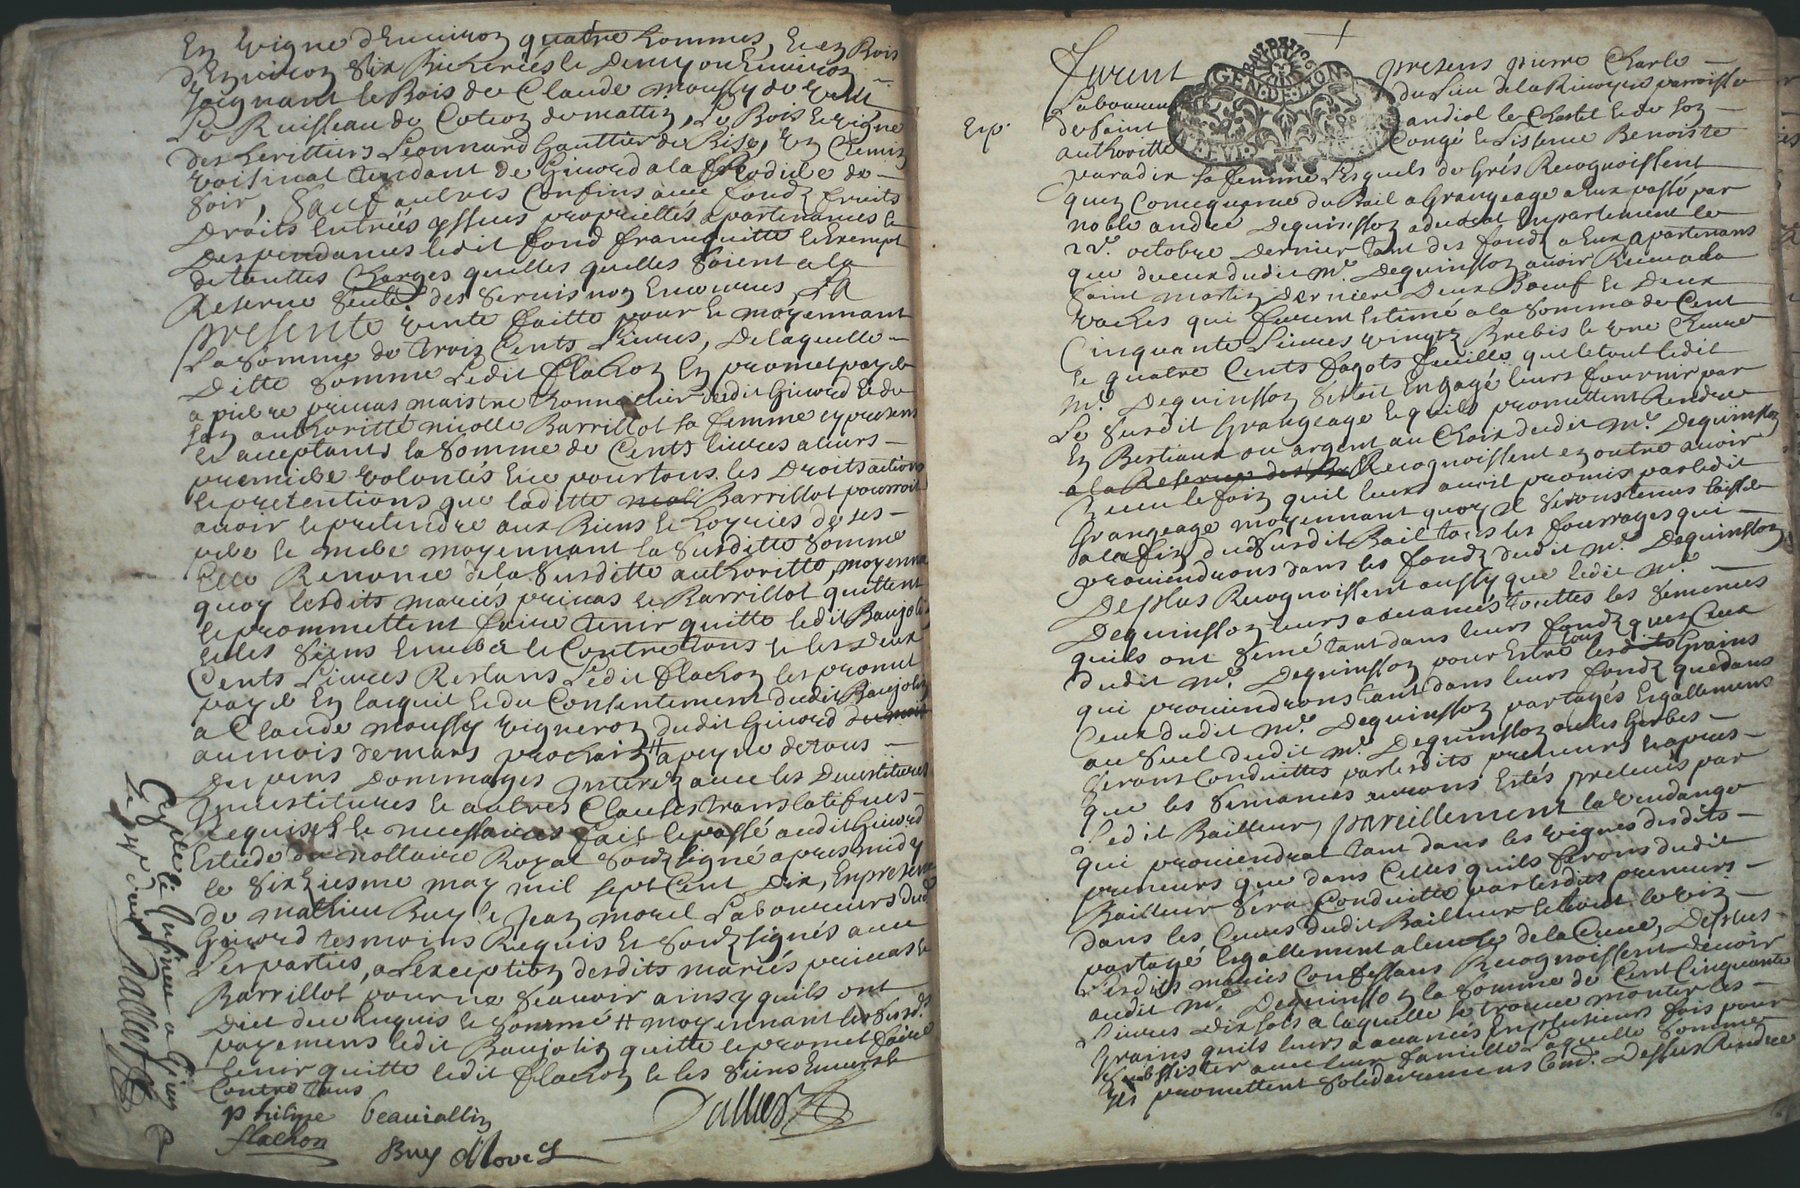 En vigne d'Environ quatre hommes, Et en Bois
d'Environ six Bicherées le Demy ou Environ
Joignant le Bois de Claude moussy de vent
Le Ruisseau de Cotton de mattin, Le Bois Et vigne
des heritiers Leonnard Gauttier de Bise, Un Chemin
voisinal tendant de Givord a la
soir, Sauf autres Confins avec fondz fruits
Droits Entrées yssues proprietés apartenances Et
Dependances ledit fond franc quitte Et Exempt
de touttes Charges quelles quelles soient a la
Reserve seule des servis non Encourus, LA
presente vente faitte pour Et moyennant
La somme de trois Cents Livres, De laquelle
Ditte somme Ledit flachon En promet payer
a pierre privas maistre dudit Givord Et de
son authoritté nicolle Barrillot sa femme cy presens
Et acceptants la somme de Cents livres a leurs
premiere volontés Et ce pour tous les Droits actions
Et pretentions que laditte Barrillot pourroit
avoir Et pretendre aux Biens Et hoyries de ses
pere Et mere moyennant la susditte somme
Elle Renonce de la susditte authoritté, moyennant
quoy lesdits mariés privas Et Barrillot quittent
Et promettent faire tenir quitte ledit Baujolin
Et les siens Envers Et Contre tous Et les Deux
Cents Livres Restans Ledit flachon les promet
payer En lacquit Et du Consentement dudit Baujolin
a Claude moussy vigneron dudit Givord
au mois de mars prochain # a peyne de tous
Despens Dommages Interez avec les Devestitures
Investitures Et autres Clauses translatives
Requises Et necessaires fait Et passé audit Givord
Estude du nottaire Royal soubzsigné apres midy
le sixiesme may mil sept Cent Dix, En presence
de mathieu Buy Et Jean morel Laboureurs dudit
Givord tesmoins Requis Et soubzsignés avec
Les parties, a L'exception desdits mariés privas Et
Barrillot pour ne sçavoir ainsy quils ont
Dict de ce Enquis Et sommé # moyennant les susd.
payemens ledit Baujolin quitte Et promet faire
tenir quitte ledit flachon Et les siens Envers Et
Contre tous
philipe beaujollin
flachon
Buy Morel
Dallier
Dallier
+
GEN. DE LYON
Furent presens pierre Charle
Laboureur du Lieu de la parroisse
de Saint andiol le Chastel Et de son
authoritté Congé Et Licence Benoiste
paradix sa femme Lesquels de Grés Recognoissent
quen Concequence du Bail a Grangeage a Eux passé par
noble andré Dequinsson advocat En parlement le
octobre Dernier tant des fondz a Eux apartenans
que de ceux dudit mr. Dequinsson avoir Receu a la
saint martin Derniere Deux Bœuf Et Deux
vaches qui furent Estimé a la somme de Cent
Cinquante Livres vingtz Brebis Et une Chevre
Et quatre Cents fagots feuille que le tout ledit
mr. Dequinsson sestoit Engagé leurs fournir par
Le susdit Grangeage Et quils promettent Rendre
En Bestiaux ou argent au Choix dudit mr. Dequinsson
a la Reserve des Recognoissent en outre avoir
Receu le foin quil leurs avoit promis par ledit
Grangeage moyennant quoy Il seront tenus laisser
a la fin du susdit Bail tous les fourrages qui
proviendrons dans les fondz dudit mr. Dequinsson
De plus Recognoissent aussy que ledit mr.
Dequinsson leurs a avancés touttes les semences
quils ont semé tant dans leurs fondz quez Ceux
dudit mr. Dequinsson pour Estre tous les Grains
qui proviendrons tant dans leurs fondz que dans
Ceux dudit mr. Dequinsson partagés Esgallement
au suel dudit mr. Dequinsson ou les Gerbes
seront Conduittes par lesdits preneurs Et apres
que les semances aurons Estés prelevés par
Ledit Bailleur, pareillement la vendange
qui proviendrat tant dans les vignes desdits
preneurs que dans Celles quils ferons dudit
Bailleur sera Conduitte par lesdits preneurs
dans les Cuves dudit Bailleur Et tout le vin
partagé Esgallement a de la Cuve, De plus
Lesdits mariés Confessans Recognoissent Devoir
audit mr. Dequinsson la somme de Cent Cinquante
Livres Dix sols a laquelle se trouve monter les
Grains quils leurs a avancés En plusieurs fois pour
subsister avec leur famille Laquelle somme
Ils promettent solidairement Co. Dessus Rendre